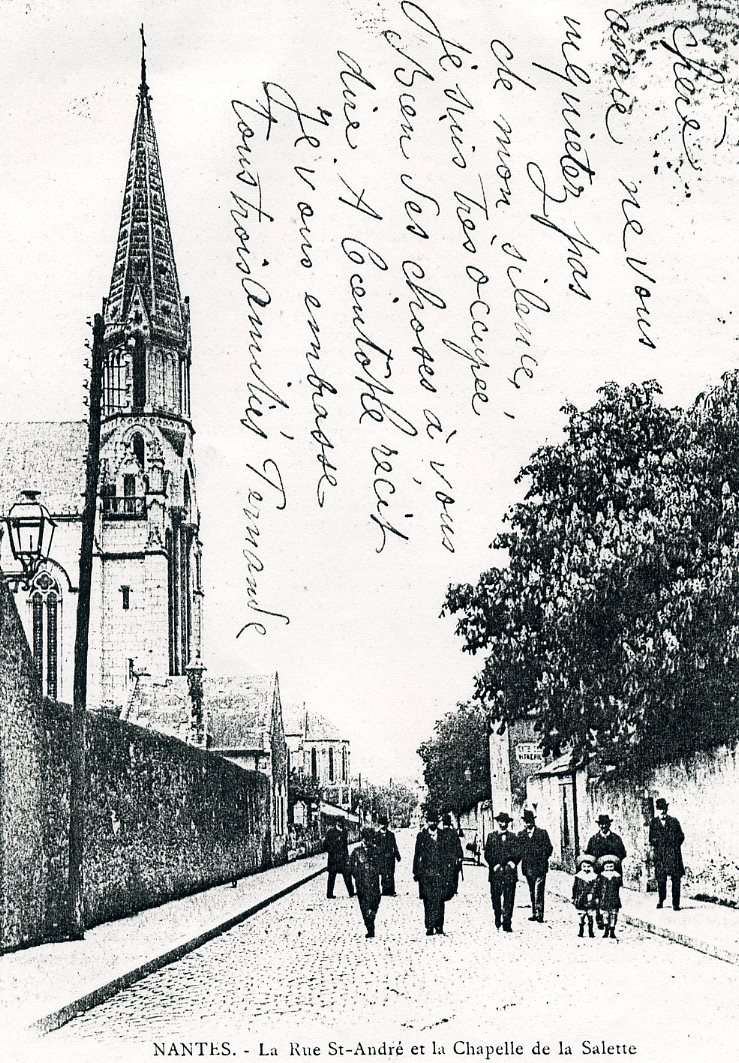 Chère
amie ne vous
inquietez pas
de mon silence,
Je suis très occupée
Bien des choses à vous
dire. A bientôt le récit
Je vous embrasse
tous trois Amitiés Fernande
NANTES. - La Rue St-André et la Chapelle de la Salette